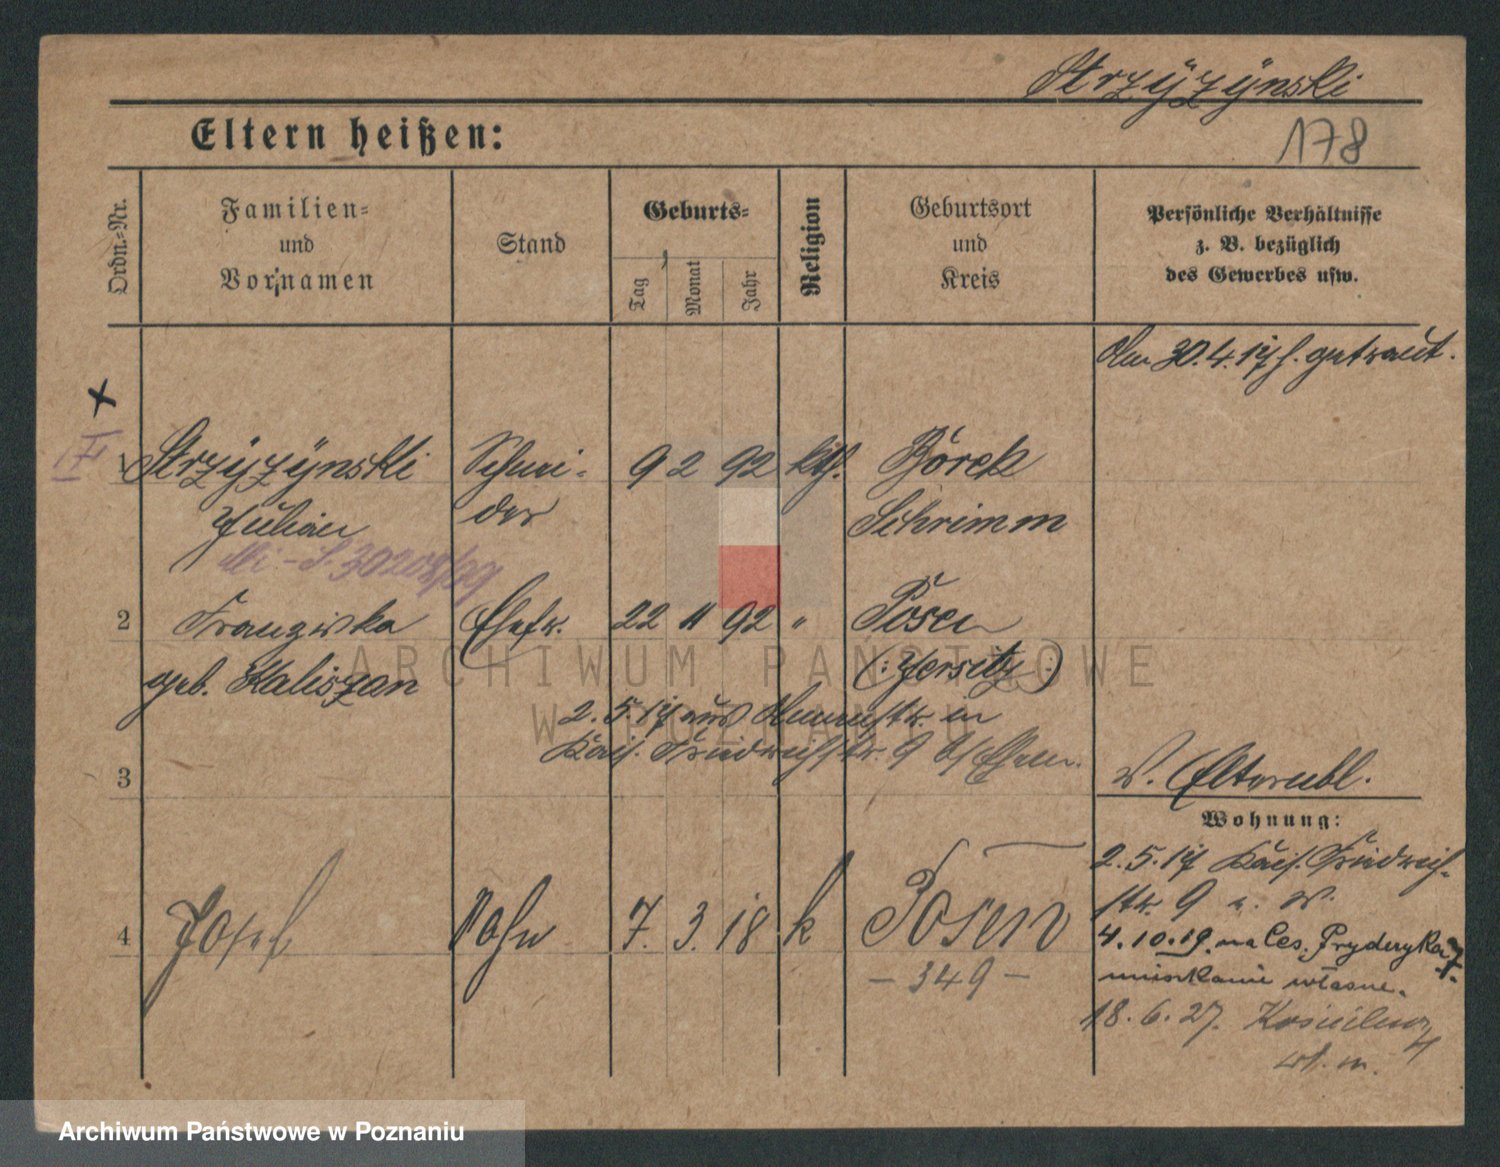 Strzyżynski
Eltern heißen:
178
Ordn.-Nr.
Familien-
und
Vornamen
Stand
Geburts-
Tag
Monat
Jahr
Religion
Geburtsort
und
Kreis
Persönliche Verhältnisse
z. B. bezüglich
des Gewerbes usw.
Am 30.4.17 h. getraut.
1 Strzyżynski Schnei- 9 2 92 kth. Borek
Julian der Schrimm
2 Franziska Ehefr. 22 11 92 " Posen
geb. Kaliszan (: Jersitz :)
2.5.17 aus in
Kais. Friedrichstr. 9 b/
3
W. Elternbl.
Wohnung:
2.5.17 Kais. Friedrich-
str. 9 e. W.
4 Josef Sohn 7. 3. 18 k Posen
4.10.19. na Ces. Fryderyka 7.
mieszkanie własne.
- 349 -
18.6.27.
wł. m.
ARCHIWUM PAŃSTWOWE
W POZNANIU
Archiwum Państwowe w Poznaniu